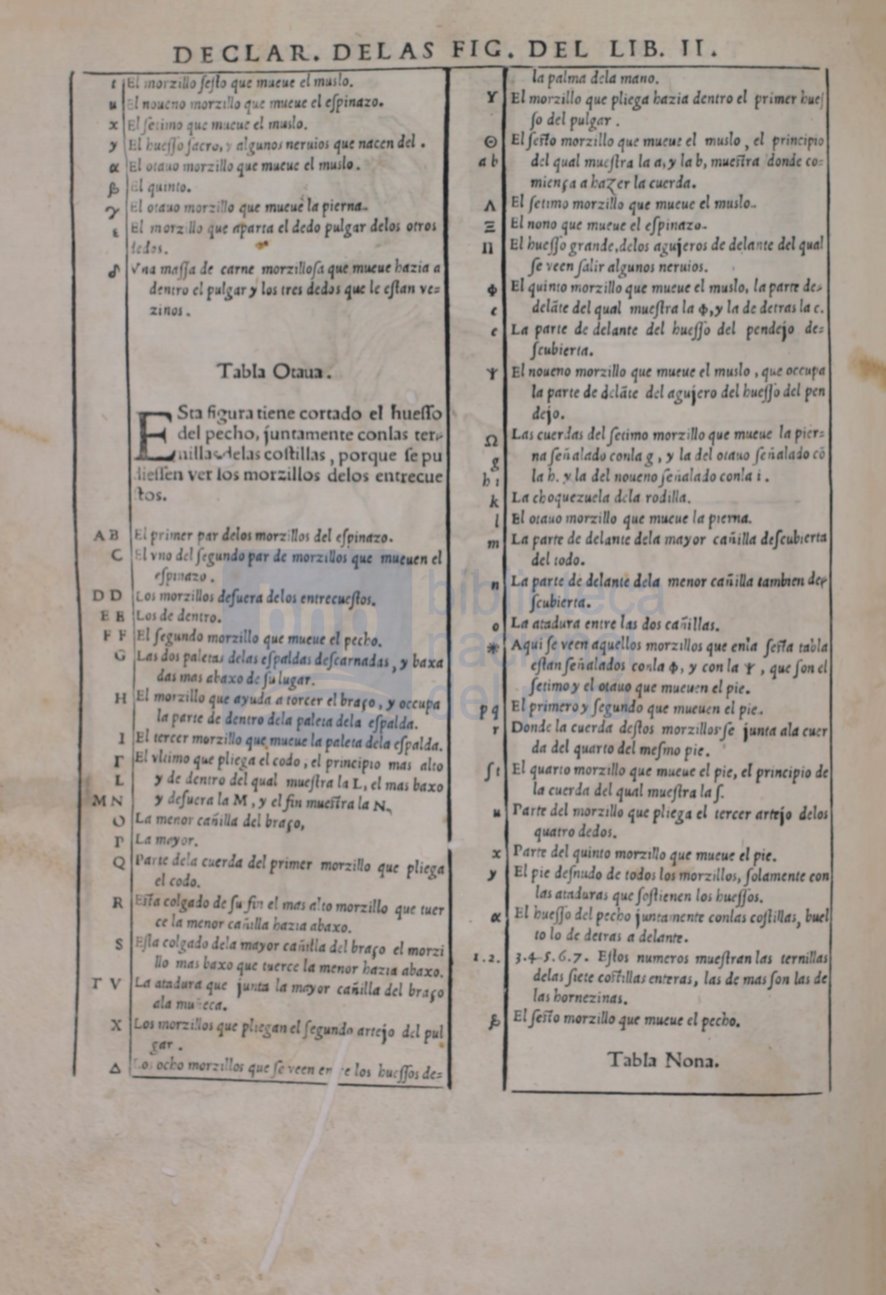 DECLAR. DELAS FIG. DEL LIB. II.
t El morzillo ſeſto que mueue el muslo.
u El noueno morzillo que mueue el eſpinazo.
x El ſetimo que mueue el muslo.
y El hueſſo ſacro, y algunos neruios que nacen del.
α El otauo morzillo que mueue el muslo.
β El quinto.
γ El otauo morzillo que mueue la pierna.
ε El morzillo que aparta el dedo pulgar delos otros
dedos.
δ Vna maſſa de carne morzilloſa que mueue hazia a
dentro el pulgar y los tres dedos que le eſtan ve=
zinos.
Tabla Otaua.
ESta figura tiene cortado el hueſſo
del pecho, juntamente conlas ter-
nillas delas coſtillas, porque ſe pu
dieſſen ver los morzillos delos entrecue
ſtos.
A B El primer par delos morzillos del eſpinazo.
C El vno del ſegundo par de morzillos que mueuen el
eſpinazo.
D D Los morzillos defuera delos entrecueſtos.
E E Los de dentro.
F F El ſegundo morzillo que mueue el pecho.
G Las dos paletas delas eſpaldas deſcarnadas, y baxa
das mas abaxo de ſu lugar.
H El morzillo que ayuda a torcer el braço, y occupa
la parte de dentro dela paleta dela eſpalda.
I El tercer morzillo que mueue la paleta dela eſpalda.
Γ El vltimo que pliega el codo, el principio mas alto
L y de dentro del qual mueſtra la L, el mas baxo
M N y defuera la M, y el fin mueſtra la N.
O La menor cañilla del braço,
P La mayor.
Q Parte dela cuerda del primer morzillo que pliega
el codo.
R Eſta colgado de ſu fin el mas alto morzillo que tuer
ce la menor cañilla hazia abaxo.
S Eſta colgado dela mayor cañilla del braço el morzi
llo mas baxo que tuerce la menor hazia abaxo.
T V La atadura que junta la mayor cañilla del braço
ala muñeca.
X Los morzillos que pliegan el ſegundo artejo del pul
gar.
Δ Los ocho morzillos que ſe veen entre los hueſſos de=
la palma dela mano.
Y El morzillo que pliega hazia dentro el primer hueſ
ſo del pulgar.
Θ El ſeſto morzillo que mueue el muslo, el principio
a b del qual mueſtra la a, y la b, mueſtra donde co=
miença a hazer la cuerda.
Λ El ſetimo morzillo que mueue el muslo.
Ξ El nono que mueue el eſpinazo.
Π El hueſſo grande, delos agujeros de delante del qual
ſe veen ſalir algunos neruios.
Φ El quinto morzillo que mueue el muslo, la parte de=
c delãte del qual mueſtra la Φ, y la de detras la c.
e La parte de delante del hueſſo del pendejo de=
ſcubierta.
Ψ El noueno morzillo que mueue el muslo, que occupa
la parte de delãte del agujero del hueſſo del pen
dejo.
Ω Las cuerdas del ſetimo morzillo que mueue la pier=
g na ſeñalado conla g, y la del otauo ſeñalado cõ
h i la h. y la del noueno ſeñalado conla i.
k La choquezuela dela rodilla.
l El otauo morzillo que mueue la pierna.
m La parte de delante dela mayor cañilla deſcubierta
del todo.
n La parte de delante dela menor cañilla tambien de=
ſcubierta.
o La atadura entre las dos cañillas.
* Aqui ſe veen aquellos morzillos que enla ſeſta tabla
eſtan ſeñalados conla Φ, y con la Ψ, que ſon el
ſetimo y el otauo que mueuen el pie.
p q El primero y ſegundo que mueuen el pie.
r Donde la cuerda deſtos morzillos ſe junta ala cuer
da del quarto del meſmo pie.
ſ t El quarto morzillo que mueue el pie, el principio de
la cuerda del qual mueſtra la ſ.
u Parte del morzillo que pliega el tercer artejo delos
quatro dedos.
x Parte del quinto morzillo que mueue el pie.
y El pie deſnudo de todos los morzillos, ſolamente con
las ataduras que ſoſtienen los hueſſos.
α El hueſſo del pecho juntamente conlas coſtillas, buel
to lo de detras a delante.
1.2. 3.4.5.6.7. Eſtos numeros mueſtran las ternillas
delas ſiete coſtillas enteras, las de mas ſon las de
las hornezinas.
β El ſeſto morzillo que mueue el pecho.
Tabla Nona.